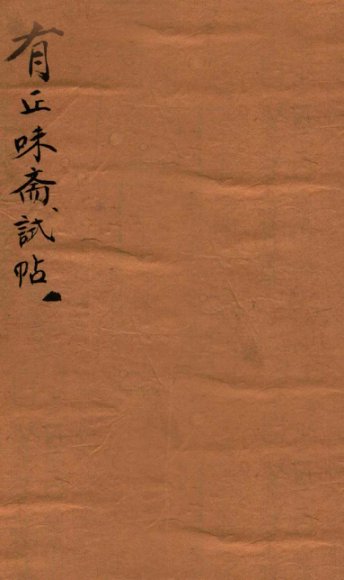 有正味斋試帖